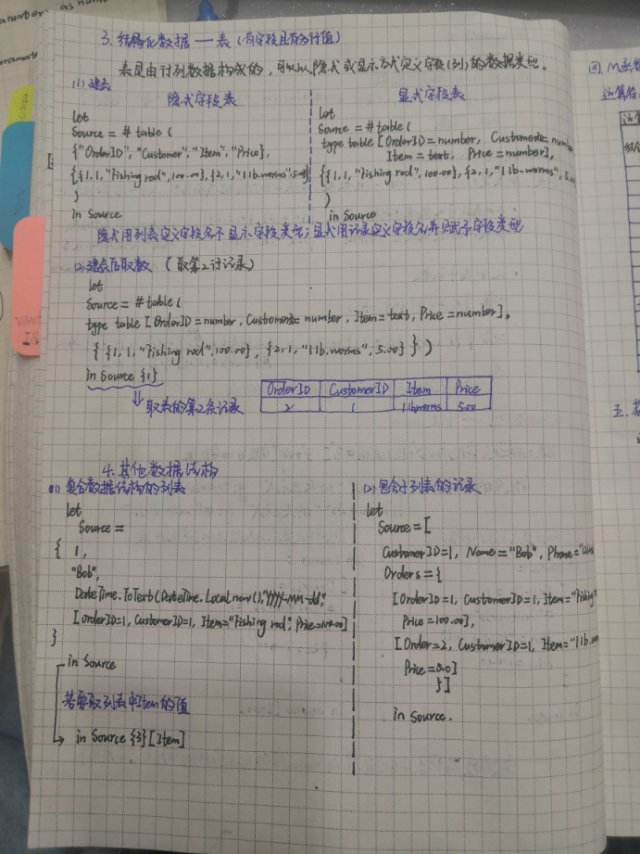 3. 结构化数据 — 表 (有字段且有分行值)
表是由行列数据构成的，可以以隐式或显示方式定义字段(列)的数据类型。
(1) 建表
隐式字段表
let
Source = # table (
{"OrderID", "Customer", "Item", "Price"},
{{1,1,"Fishing rod",100.00}, {2,1,"1 lb.worms",5.00}
)
in Source
显式字段表
let
Source = # table (
type table [OrderID = number, CustomerID = number
Item = text, Price = number],
{{1,1,"Fishing rod",100.00}, {2,1,"1 lb.worms",5.00
)
in Source
隐式用列表定义字段名不显示字段类型；显式用记录定义字段名再赋予字段类型
(2) 建表后取数 (取第2行记录)
let
Source = # table (
type table [OrderID = number, CustomerID = number, Item = text, Price = number],
{ {1,1,"Fishing rod",100.00}, {2,1,"1 lb.worms",5.00} } )
in Source {1}
⇓ 取表的第2条记录
OrderID CustomerID Item Price
2 1 1lbworms 5.00
4. 其他数据结构
(1) 包含数据结构的列表
let
Source =
{ 1,
"Bob",
DateTime.ToText(DateTime.LocalNow(),"yyyy-MM-dd",
[OrderID=1, CustomerID=1, Item="Fishing rod", Price=100.00]
}
in Source
若要取列表中Item的值
in Source {3}[Item]
(2) 包含子列表的记录
let
Source = [
CustomerID=1, Name="Bob", Phone=
Orders = {
[OrderID=1, CustomerID=1, Item="Fishing
Price=100.00],
[Order=2, CustomerID=1, Item="1 lb.wo
Price=5.0]
}]
in Source.
四
五.